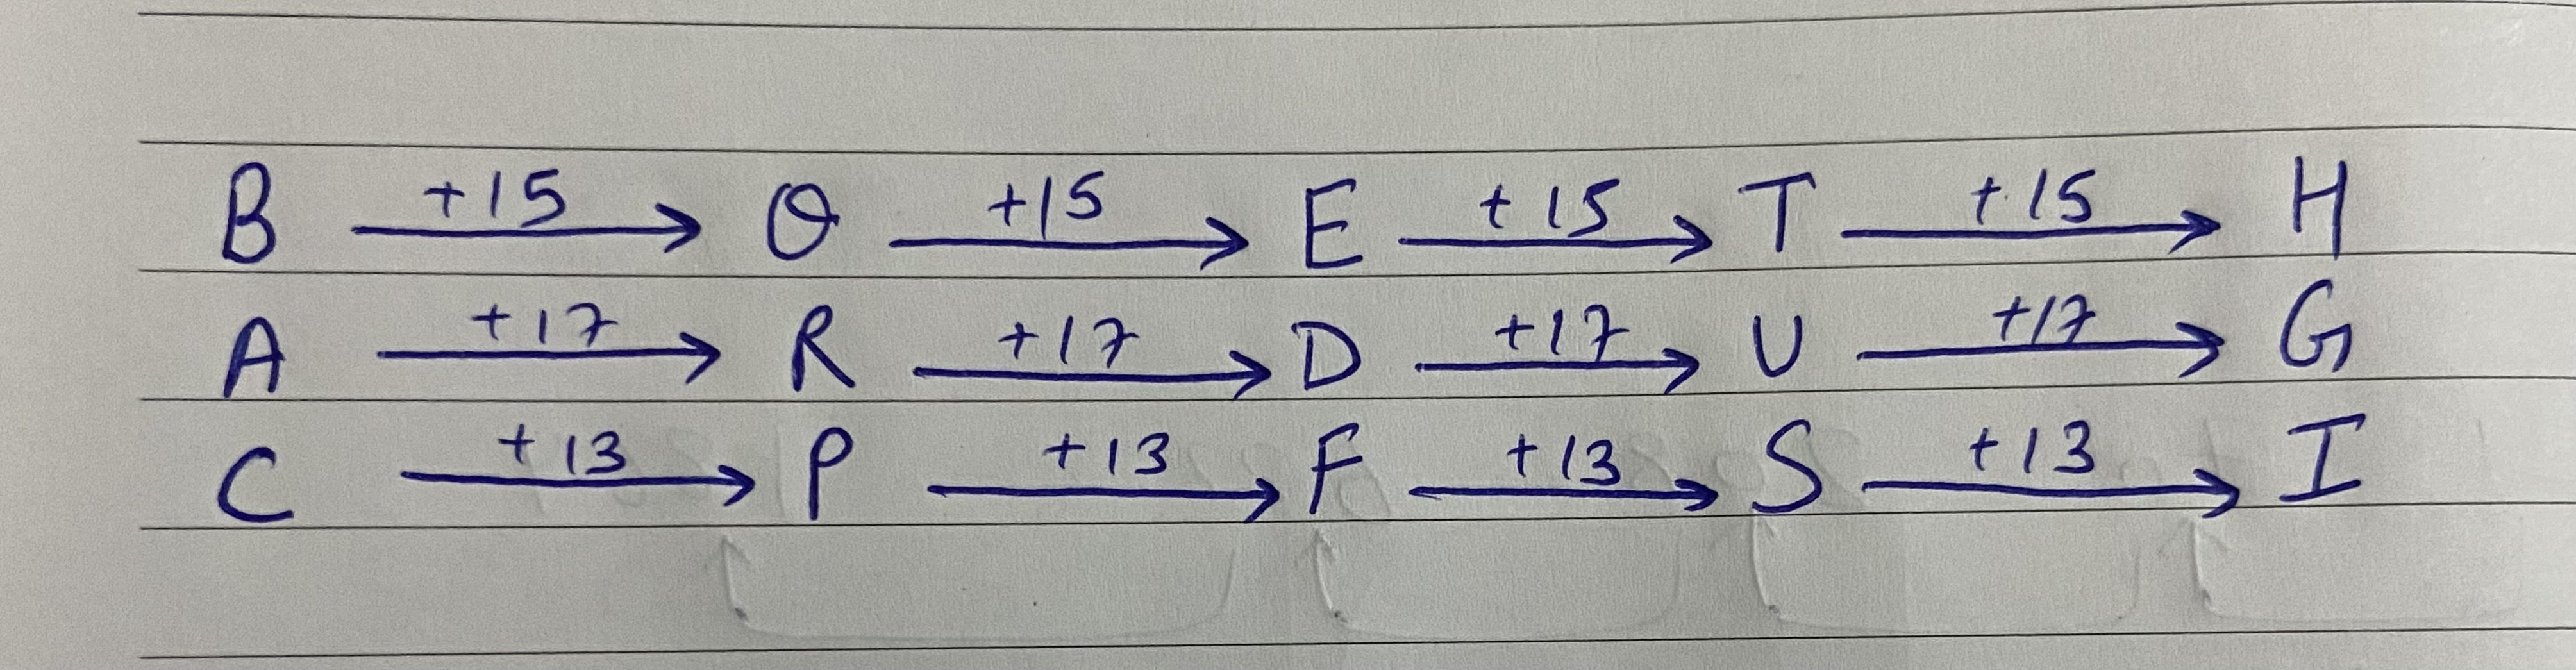 B +15 → Q +15 → E +15 → T +15 → H
A +17 → R +17 → D +17 → U +17 → G
C +13 → P +13 → F +13 → S +13 → I